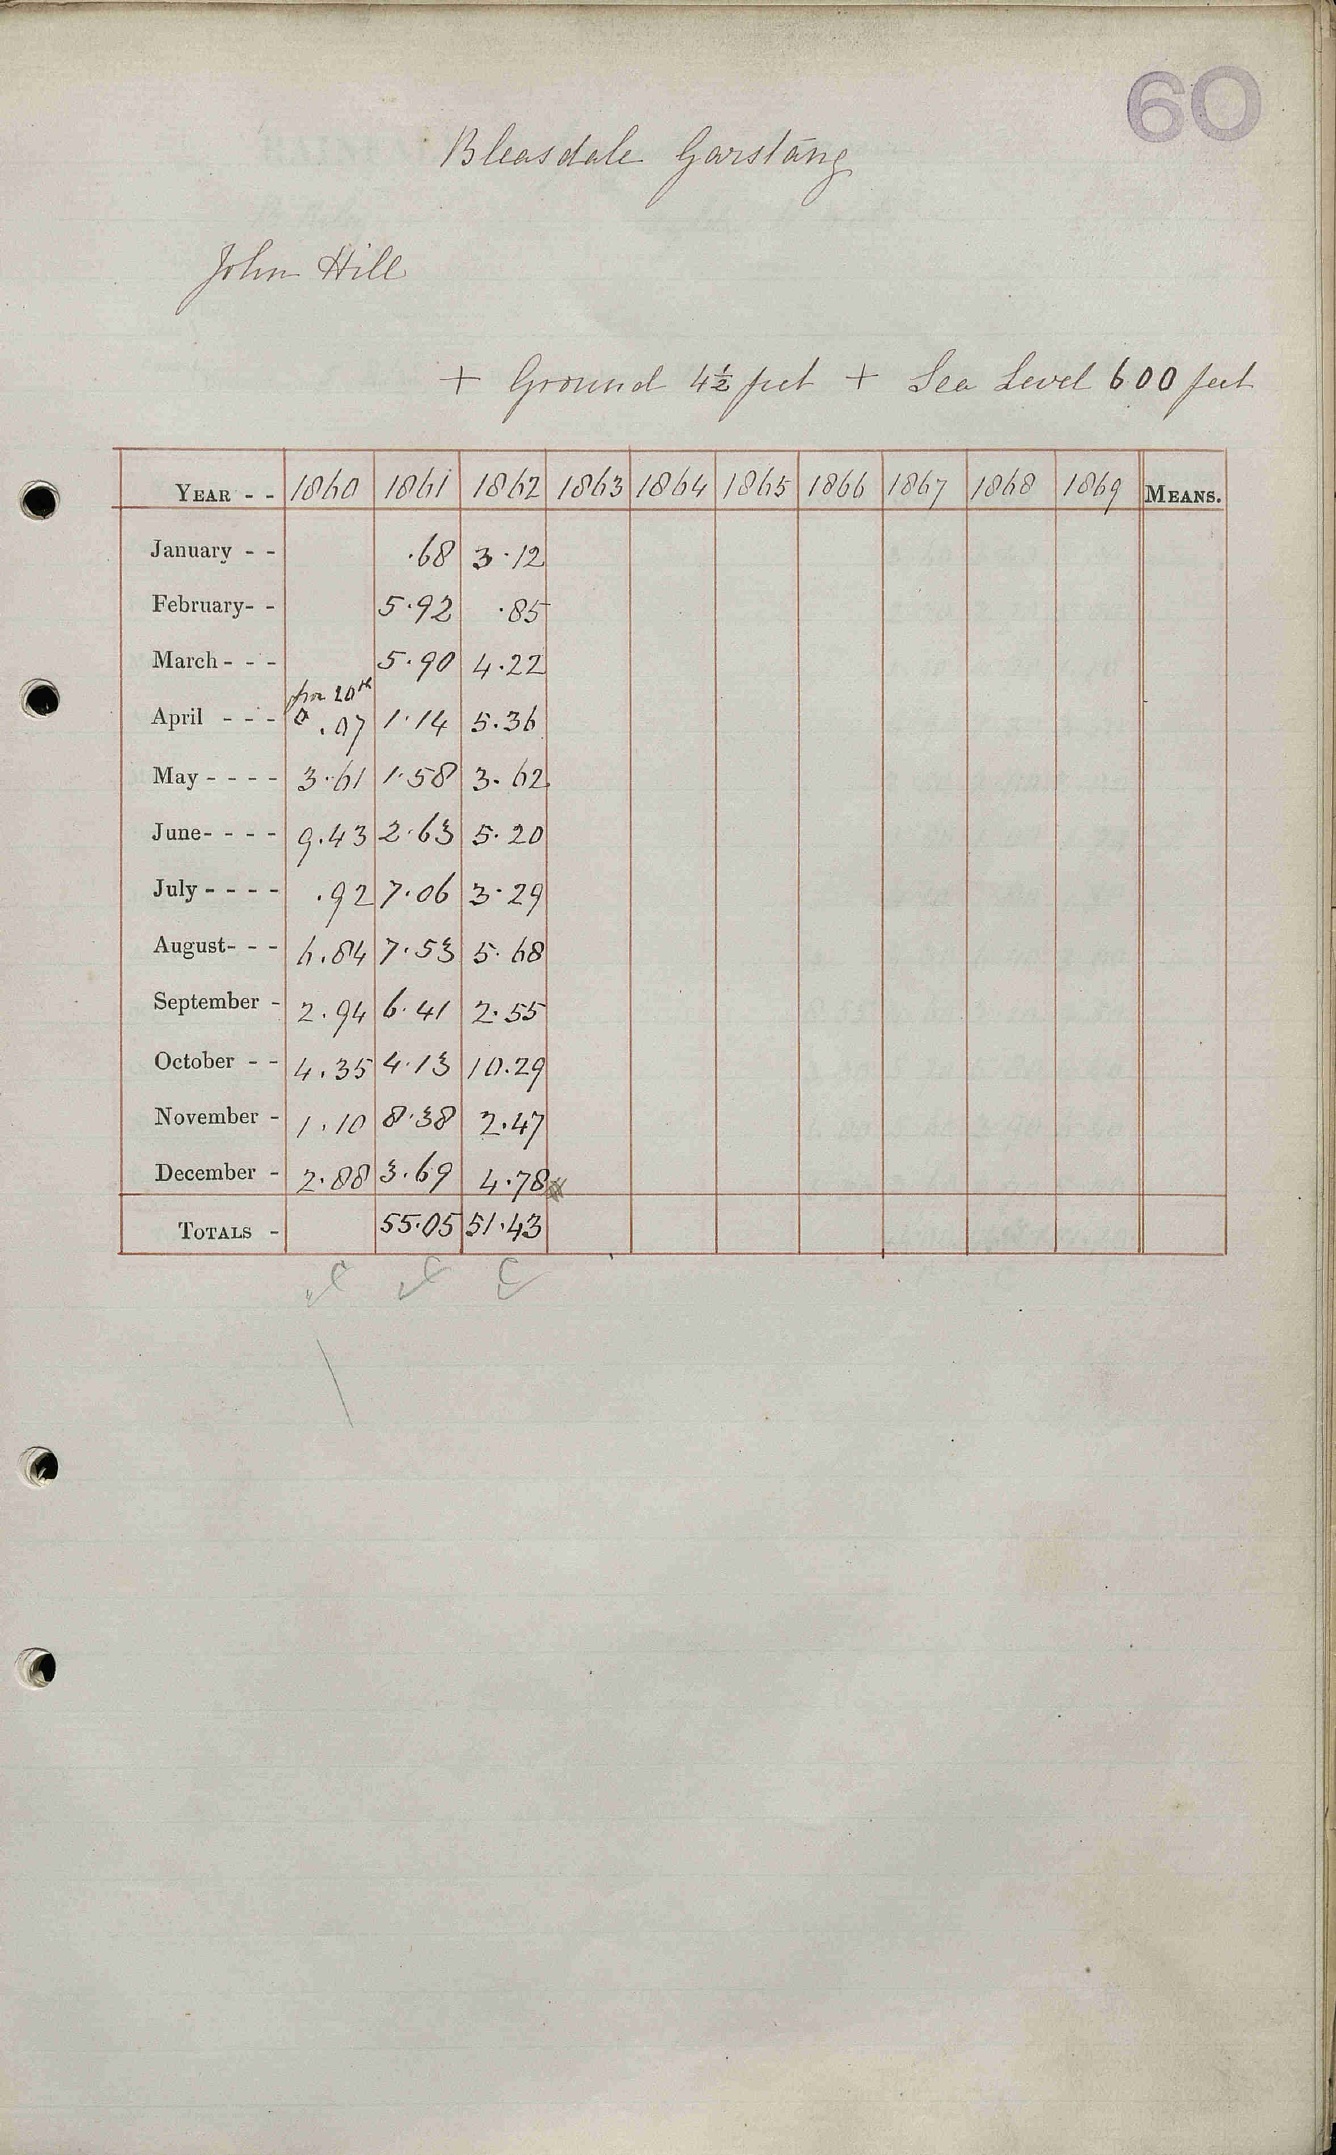 60
Bleasdale Garstang
John Hill
+ Ground 4½ feet + Sea Level 600 feet
YEAR - - 1860 1861 1862 1863 1864 1865 1866 1867 1868 1869 MEANS.
January - - .68 3.12
February- - 5.92 .85
March - - - 5.90 4.22
from 20th
April - - - 0.07 1.14 5.36
May - - - - 3.61 1.58 3.62
June- - - - 9.43 2.63 5.20
July - - - - .92 7.06 3.29
August- - - 6.84 7.53 5.68
September - 2.94 6.41 2.55
October - - 4.35 4.13 10.29
November - 1.10 8.38 2.47
December - 2.88 3.69 4.78
TOTALS - 55.05 51.43